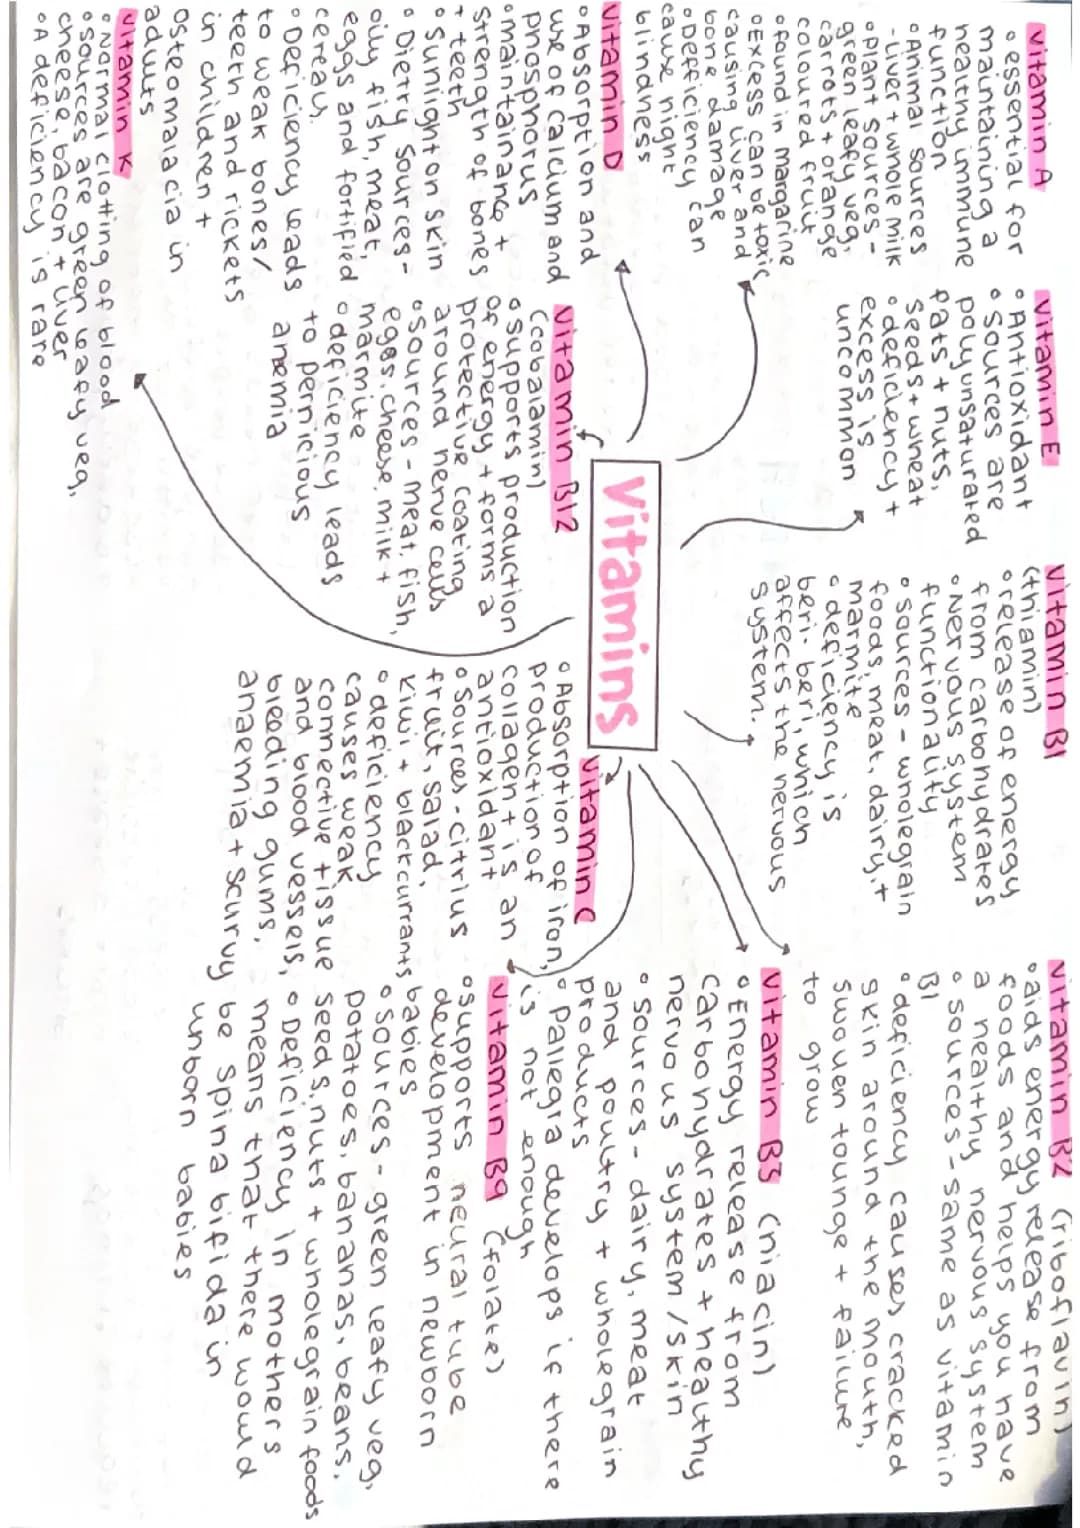 Vitamins
Vitamin A
• essential for
mauntaining a
healthy immune
function
• Animal sources
- Liver + whole milk
• plant sources -
green leafy veg,
carrots + orange
coloured fruit
• found in margarine
• Excess can be toxic
causing liver and
bone damage
• Defficiency can
cause night
blindness
Vitamin E
• Antioxidant
• Sources are
polyunsaturated
fats + nuts,
seeds + wheat
• deficiency +
excess is
uncommon
Vitamin B1
(thiamin)
• release of energy
from carbohydrates
• Nervous system
functionality
• sources - wholegrain
foods, meat, dairy, +
marmite
• deficiency is
beri-beri, which
affects the nervous
system.
Vitamin B2 (riboflavin)
• aids energy release from
foods and helps you have
a healthy nervous system
• sources - same as vitamin
B1
• deficiency causes cracked
skin around the mouth,
swollen tounge + failure
to grow
Vitamin D
• Absorption and
use of calcium and
phosphorus
• maintainance +
strength of bones
+ teeth
• sunlight on skin
• Dietry sources -
oily fish, meat,
eggs and fortified
cereals.
• Deficiency leads
to weak bones/
teeth and rickets
in children +
osteomalacia in
adults
Vitamin B12
(cobalamin)
• supports production
of energy + forms a
protective coating
around nerve cells
• sources - meat, fish,
eggs, cheese, milk +
marmite
• deficiency leads
to pernicious
anemia
Vitamin C
• Absorption of iron,
production of
collagen + is an
antioxidant
• Sources - citrius
fruit, salad,
kiwi + blackcurrants
• deficiency
causes weak
connective tissue
and blood vessels,
bleeding gums,
anaemia + scurvy
Vitamin B3 (niacin)
• Energy release from
carbohydrates + healthy
nervous system / skin
• sources - dairy, meat
and poultry + wholegrain
products
• Pallegra develops if there
is not enough
Vitamin B9 (folate)
• supports neural tube
development in newborn
babies
• sources - green leafy veg,
potatoes, bananas, beans,
seeds, nuts + wholegrain foods
• Deficiency in mothers
means that there would
be spina bifida in
unborn babies
Vitamin K
• Normal clotting of blood
• sources are green leafy veg,
cheese, bacon + liver
• A deficiency is rare